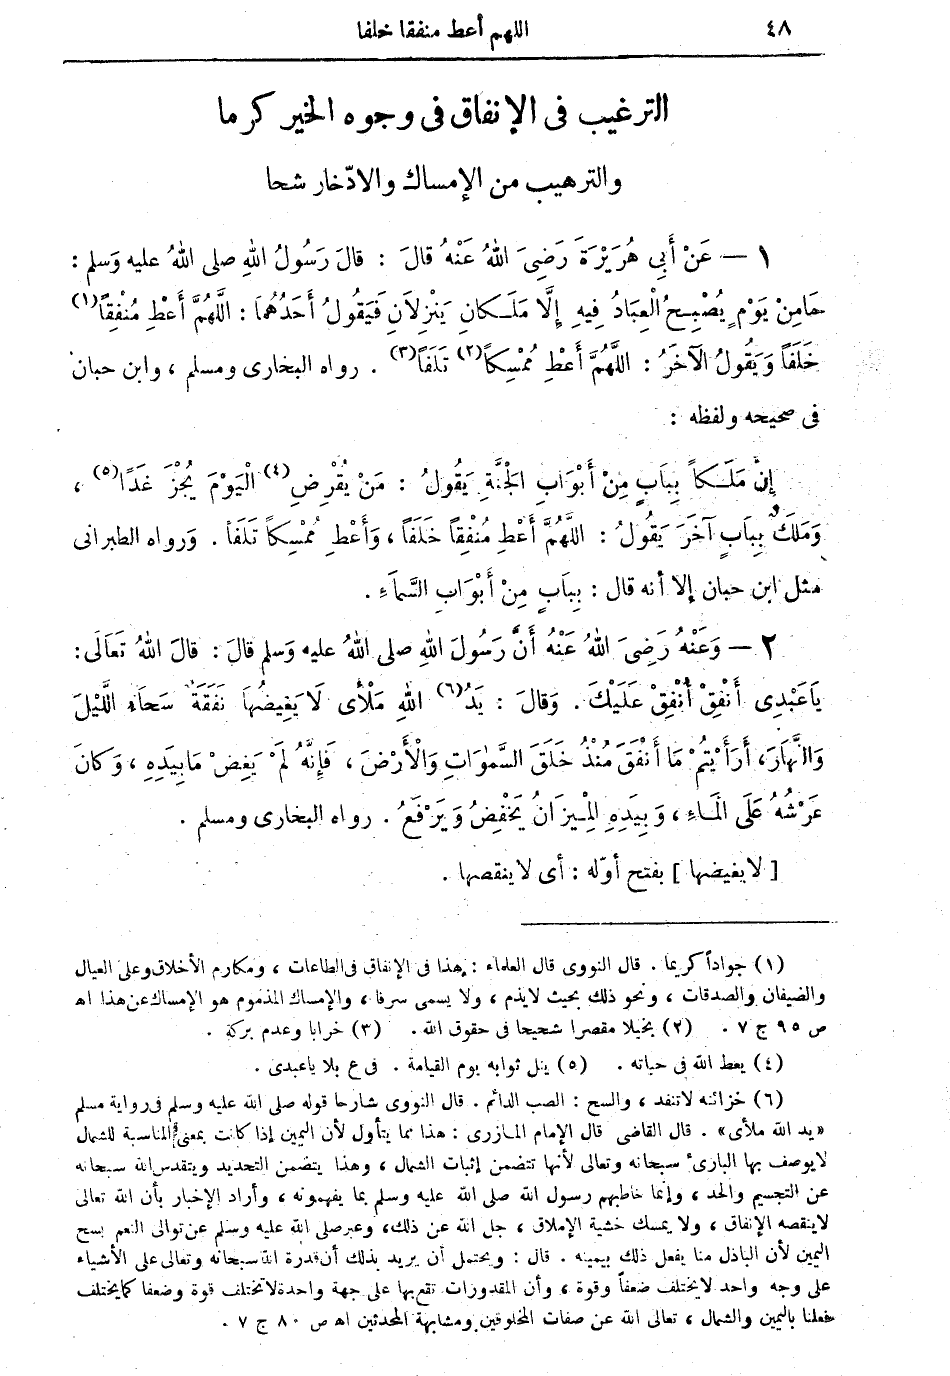 ٤٨
اللهم أعط منفقا خلفا
الترغيب فى الإنفاق فى وجوه الخير كرما
والترهيب من الإمساك والادّخار شحا
١ — عَنْ أَبِي هُرَيْرَةَ رَضِىَ اللهُ عَنْهُ قالَ : قالَ رَسُولُ اللهِ صلى اللهُ عليه وَسلم :
مَامِنْ يَوْمٍ يُصْبِحُ الْعِبَادُ فِيهِ إِلَّا مَلَكانِ يَنْزِلَانِ فَيَقُولُ أَحَدُهُمَا : اللَّهُمَّ أَعْطِ مُنْفِقاً(١)
خَلَفاً وَيَقُولُ الآخَرُ : اللَّهُمَّ أَعْطِ مُمْسِكاً(٢) تَلَفاً(٣) . رواه البخارى ومسلم ، وابن حبان
فى صحيحه ولفظه :
إِنَّ مَلَكاً بِبَابٍ مِنْ أَبْوَابِ الجَنَّةِ يَقُولُ : مَنْ يُقْرِضِ(٤) الْيَوْمَ يُجْزَ غَدًا(٥) ،
وَمَلَكٌ بِبَابٍ آخَرَ يَقُولُ : اللَّهُمَّ أَعْطِ مُنْفِقاً خَلَفاً ، وَأَعْطِ مُمْسِكاً تَلَفاً . وَرواه الطبرانى
مثل ابن حبان إلا أنه قال : بِبَابٍ مِنْ أَبْوَابِ السَّمَاءِ .
٢ — وَعَنْهُ رَضِىَ اللهُ عَنْهُ أَنَّ رَسُولَ اللهِ صلى اللهُ عليه وَسلم قالَ : قالَ اللهُ تَعَالَى :
يَاعَبْدِى أَنْفِقْ أُنْفِقْ عَلَيْكَ . وَقالَ : يَدُ(٦) اللهِ مَلْأَى لَا يَغِيضُهَا نَفَقَةٌ سَحَّاءُ اللَّيْلَ
وَالنَّهَارَ، أَرَأَيْتُمْ مَا أَنْفَقَ مُنْذُ خَلَقَ السَّمٰوَاتِ وَالْأَرْضَ ، فَإِنَّهُ لَمْ يَغِضْ مَابِيَدِهِ ، وَكانَ
عَرْشُهُ عَلَى الْمَاءِ ، وَبِيَدِهِ الْمِيزَانُ يَخْفِضُ وَيَرْفَعُ . رواه البخارى ومسلم .
[ لايغيضها ] بفتح أوّله : أى لاينقصها .
(١) جواداً كريما . قال النووى قال العلماء : هذا فى الإنفاق فى الطاعات ، ومكارم الأخلاق وعلى العيال
والضيفان والصدقات ، ونحو ذلك بحيث لايذم ، ولا يسمى سرفا ، والإمساك المذموم هو الإمساك عن هذا اهـ
ص ٩٥ ج ٧ . (٢) بخيلا مقصرا شحيحا فى حقوق الله . (٣) خرابا وعدم بركة .
(٤) يعط الله فى حياته . (٥) ينل ثوابه يوم القيامة . فى ع بلا ياعبدى .
(٦) خزائنه لاتنفد ، والسح : الصب الدائم . قال النووى شارحا قوله صلى الله عليه وسلم فى رواية مسلم
«يد الله ملأى» . قال القاضى قال الإمام المازرى : هذا مما يتأول لأن اليمين إذا كانت بمعنى المناسبة للشمال
لايوصف بها البارئ سبحانه وتعالى لأنها تتضمن إثبات الشمال ، وهذا يتضمن التحديد ويتقدس الله سبحانه
عن التجسيم والحد ، وإنما خاطبهم رسول الله صلى الله عليه وسلم بما يفهمونه ، وأراد الإخبار بأن الله تعالى
لاينقصه الإنفاق ، ولا يمسك خشية الإملاق ، جل الله عن ذلك، وعبر صلى الله عليه وسلم عن توالى النعم بسح
اليمين لأن الباذل منا يفعل ذلك بيمينه . قال : ويحتمل أن يريد بذلك أن قدرة الله سبحانه وتعالى على الأشياء
على وجه واحد لايختلف ضعفاً وقوة ، وأن المقدورات تقع بها على جهة واحدة لاتختلف قوة وضعفا كما يختلف
فعلنا باليمين والشمال ، تعالى الله عن صفات المخلوقين ومشابهة المحدثين اهـ ص ٨٠ ج ٧ .